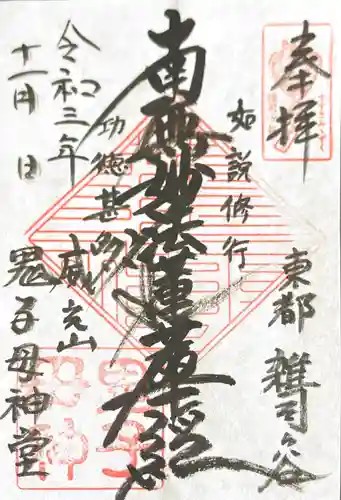 奉拝
東都 雑司ヶ谷
如説修行
南無妙法蓮華経
功徳甚多
威光山
鬼子母神堂
令和三年
十一月 日